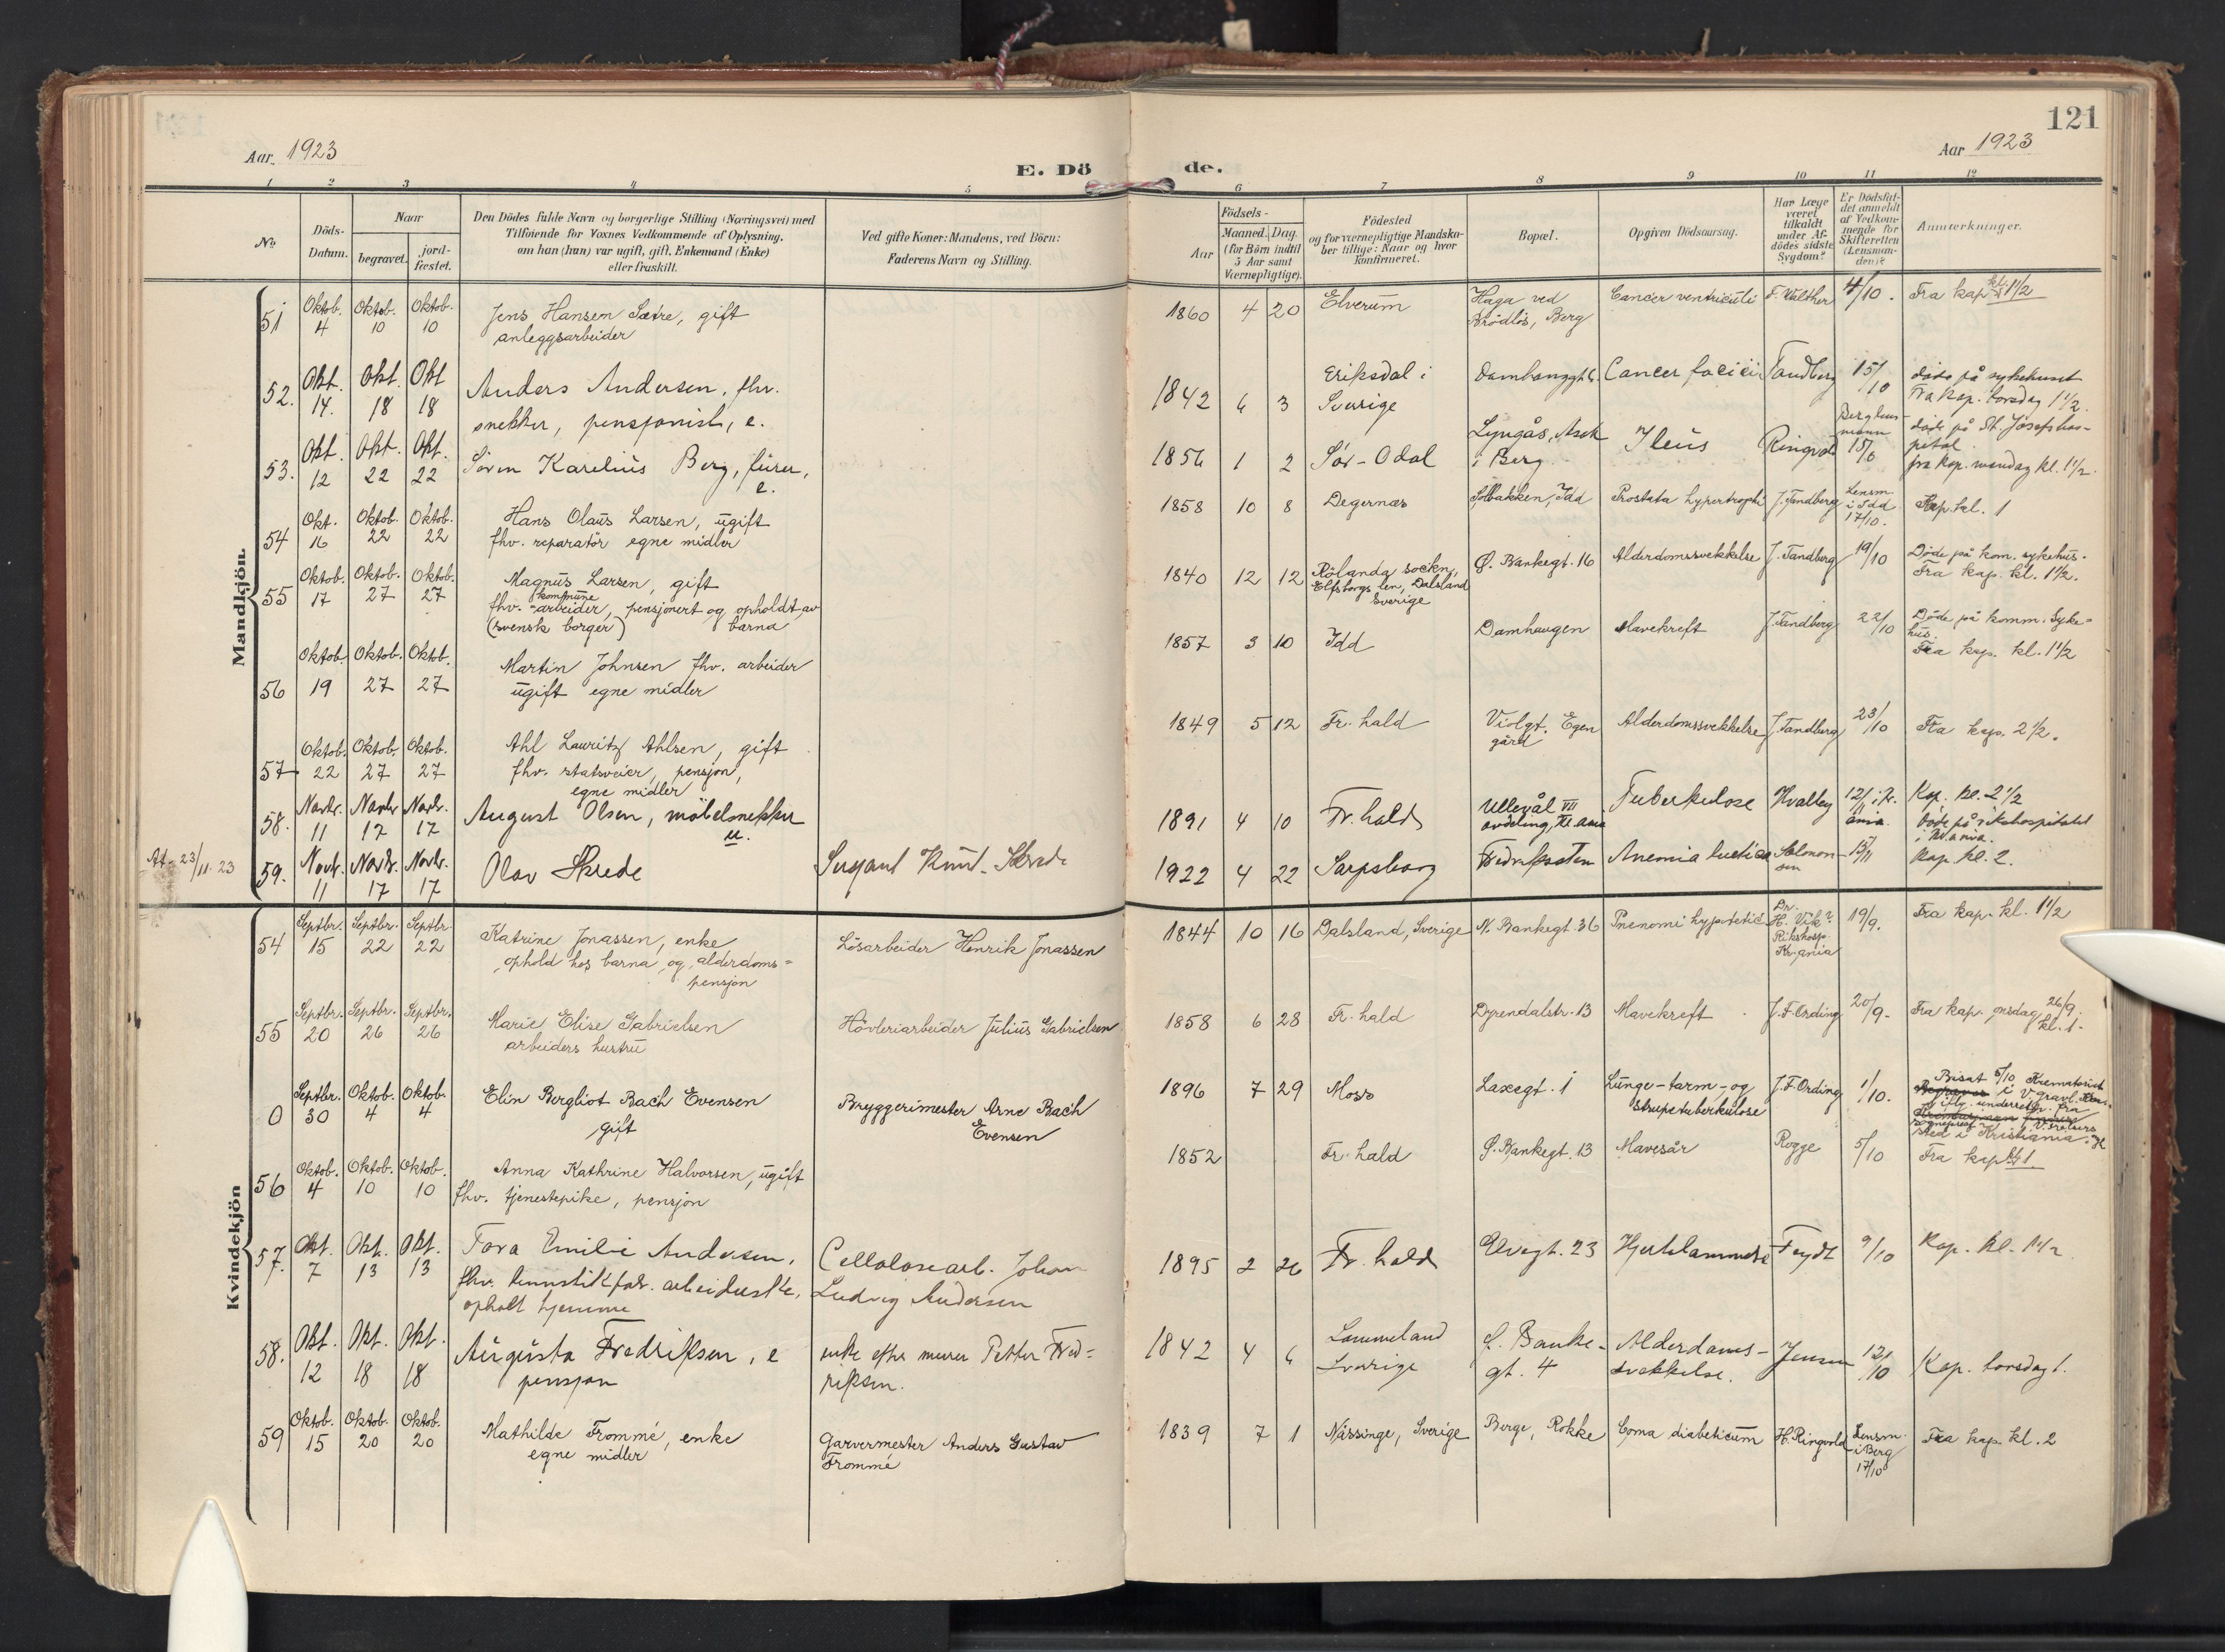 121
Aar. 1923
E. Dö
de.
Aar 1923
1 2 3 4 5 6 7 8 9 10 11 12
No.
Döds-Datum.
Naar
begravet. jord-fæstet.
Den Dödes fulde Navn og borgerlige Stilling (Næringsvei) med
Tilföiende for Voxnes Vedkommende af Oplysning,
om han (hun) var ugift, gift, Enkemand (Enke)
eller fraskilt.
Ved gifte Koner: Mandens, ved Börn:
Faderens Navn og Stilling.
Födsels-
Aar Maaned. Dag.
(for Börn indtil
5 Aar samt
Værnepligtige).
Födested
og for værnepligtige Mandska-
ber tillige: Naar og hvor
Konfirmeret.
Bopæl.
Opgiven Dödsaarsag.
Har Læge
været
tilkaldt
under Af-
dödes sidste
Sygdom?
Er Dödsfal-
det anmeldt
af Vedkom-
mende for
Skifteretten
(Lensman-
den)?
Anmerkninger.
Mandkjön.
51 Oktob. 4 Oktob. 10 Oktob. 10 Jens Hansen Sætre, gift
anleggsarbeider
1860 4 20 Elverum Haga ved
Brödlös, Berg Cancer ventriculi F. Walther 4/10. Fra kap. kl. 1 1/2
52. Okt. 14. Okt. 18 Okt 18 Anders Andersen, fhv.
snekker, pensjonist, e.
1842 6 3 Eriksdal i
Sverige Cancer faciei Tandberg 15/10 döde på sykehuset
Fra kap. torsdag 1 1/2.
53. Okt. 12 Okt. 22 Okt. 22 Sören Karelius Berg, furer,
e.
1856 1 2 Sör-Odal Lyngås, Asak
i Berg Ileus Ringvold döde på St. Josefshos-
pital
fra kap. mandag kl. 1 1/2.
54 Okt. 16 Oktob. 22 Oktob. 22 Hans Olaus Larsen, ugift
fhv. reparatör egne midler
1858 10 8 Degernæs Solbakken, Idd Prostata hypertrophi J. Tandberg Lensm.
i Idd
17/10. Kap. kl. 1
55 Oktob. 17 Oktob. 27 Oktob. 27 Magnus Larsen, gift
kommune
fhv. -arbeider, pensjonert og opholdt av
(svensk borger) barna
1840 12 12 Rölanda sockn,
Elfsborgs len, Dalsland
Sverige Ø. Bankegt. 16 Alderdomssvekkelse J. Tandberg 19/10 Döde på kom. sykehus.
Fra kap. kl. 1 1/2.
56 Oktob. 19 Oktob. 27 Oktob. 27 Martin Johnsen fhv. arbeider
ugift egne midler
1857 3 10 Idd Damhaugen Mavekreft J. Tandberg 22/10 Döde på komm. Syke-
hus.
Fra kap. kl. 1 1/2
57 Oktob. 22 Oktob. 27 Oktob. 27 Ahl Lauritz Ahlsen, gift
fhv. statsveier, pensjon,
egne midler
1849 5 12 Fr.hald Violgt. Egen
gård Alderdomssvekkelse J. Tandberg 23/10 Fra kap. 2 1/2.
58. Novbr. 11 Novbr 17 Novbr. 17 August Olsen, möbelsnekker
u.
1891 4 10 Fr.hald Ullevål VIII
avdeling, Kr.ania Tuberkulose Hvalby 12/11 i Kr.
ania. Kap. kl. 2 1/2
Döde på rikshospitalet
i Kr.ania.
At. 23/11. 23
59. Novbr. 11 Novbr. 17 Novbr. 17 Olav Skrede Knut Skrede
1922 4 22 Sarpsborg Fredriksten Anemia luetica Salomon-
sen 15/11 Kap. kl. 2.
Kvindekjön
54 Septbr. 15 Septbr. 22 Septbr. 22 Katrine Jonassen, enke
ophold hos barna og alderdoms=
pensjon Lösarbeider Henrik Jonassen
1844 10 16 Dalsland, Sverige N. Bankegt. 36 Dr.
H. Vik?
Rikshosp.
Kr.ania 19/9. Fra kap. kl. 1 1/2
55 Septbr. 20 Septbr. 26 Septbr. 26 Marie Elise Gabrielsen
arbeiders hustru Hövleriarbeider Julius Gabrielsen
1858 6 28 Fr.hald Dyrendalstr. 13 Mavekreft J. F. Ording 20/9. Fra kap. onsdag 26/9.
kl. 1.
0 Septbr. 30 Oktob. 4 Oktob. 4 Elin Bergliot Bach Evensen
gift Bryggerimester Arne Bach
Evensen
1896 7 29 Moss Laxegt. 1 Lunge-tarm-og
strupetuberkulose J. F. Ording 1/10. Bisat 5/10 Krematoriet
i V. gravl.
iflg. underretn. fra
sted i Kristiania.
56 Oktob. 4 Oktob. 10 Oktob. 10 Anna Kathrine Halvorsen, ugift
fhv. tjenestepike, pensjon
1852 Fr.hald Ø. Bankegt. 13 Mavesår Rogge 5/10 Fra kap. kl. 1
57. Okt. 7 Okt. 13 Okt. 13 Tora Emilie Andersen,
fhv. fyrstikkfabr. arbeiderske,
opholt hjemme Cellulosearb. Johan
Ludvig Andersen
1895 2 26 Fr.hald Elvegt. 23 Hjertelammelse Feydt 9/10 Kap. kl. 1 1/2
58. Okt. 12 Okt. 18 Okt. 18 Augusta Fredriksen, e
pensjon enke efter murer Petter Fred=
riksen.
1842 4 6 Lommeland
Sverige Ø. Banke-
gt. 4 Alderdoms-
svekkelse. Jensen 12/10 Kap. torsdag 1.
59 Oktob. 15 Oktob. 20 Oktob. 20 Mathilde Frommé, enke
egne midler Garvermester Anders Gustav
Frommé
1839 7 1 Nässinge, Sverige Berge, Rokke Coma diabeticum H. Ringvold Lensm.
i Berg
17/10 Fra kap. kl. 2